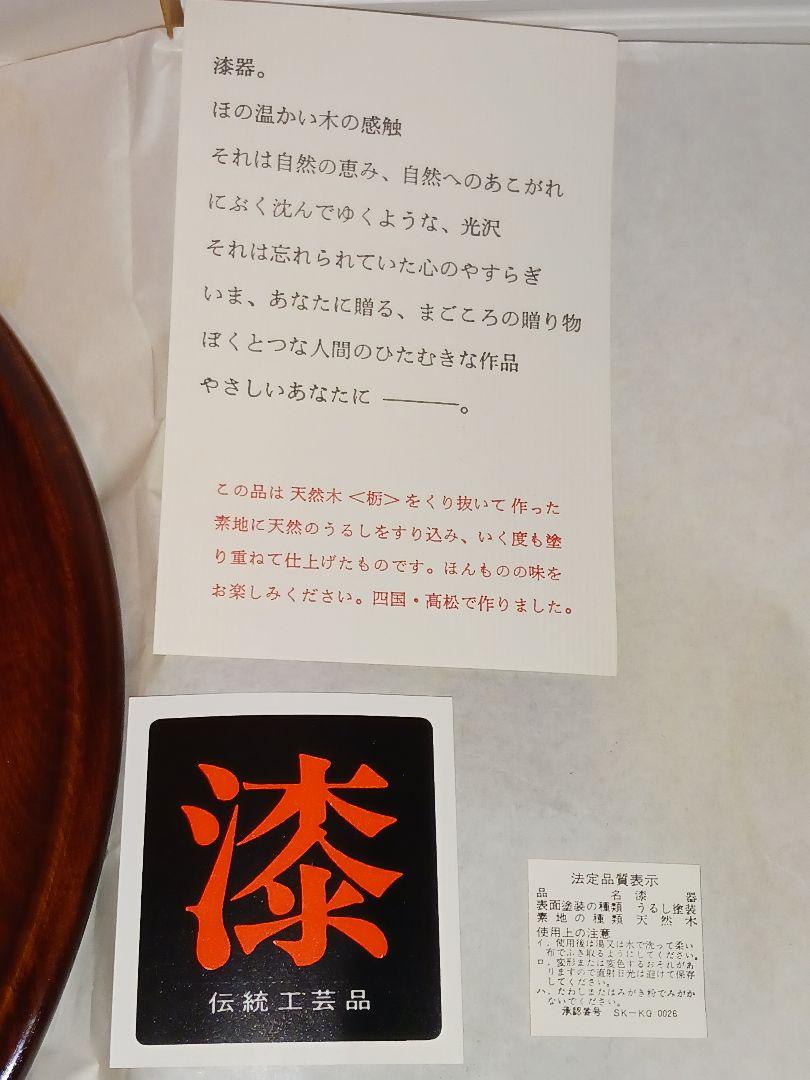 漆器。
ほの温かい木の感触
それは自然の恵み、自然へのあこがれ
にぶく沈んでゆくような、光沢
それは忘れられていた心のやすらぎ
いま、あなたに贈る、まごころの贈り物
ぼくとつな人間のひたむきな作品
やさしいあなたに ———。
この品は天然木＜栃＞をくり抜いて作った
素地に天然のうるしをすり込み、いく度も塗
り重ねて仕上げたものです。ほんものの味を
お楽しみください。四国・高松で作りました。
漆
伝統工芸品
法定品質表示
品名 漆器
表面塗装の種類 うるし塗装
素地の種類 天然木
使用上の注意
イ．使用後は湯又は水で洗って柔い
布でふき取るようにしてください。
ロ．変形または変色するおそれがあ
りますので直射日光は避けて保存
してください。
ハ．たわしまたはみがき粉でみがか
ないでください。
承認番号 SK－KG 0026